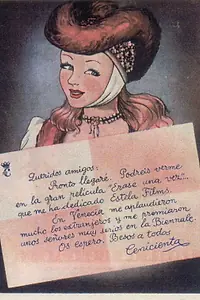 Queridos amigos:
Pronto llegaré. Podréis verme
en la gran película "Erase una vez"..
que me ha dedicado Estela Films.
En Venecia me aplaudieron
mucho los extranjeros y me premiaron
unos señores muy serios en la Biennale
Os espero. Besos a todos
Cenicienta